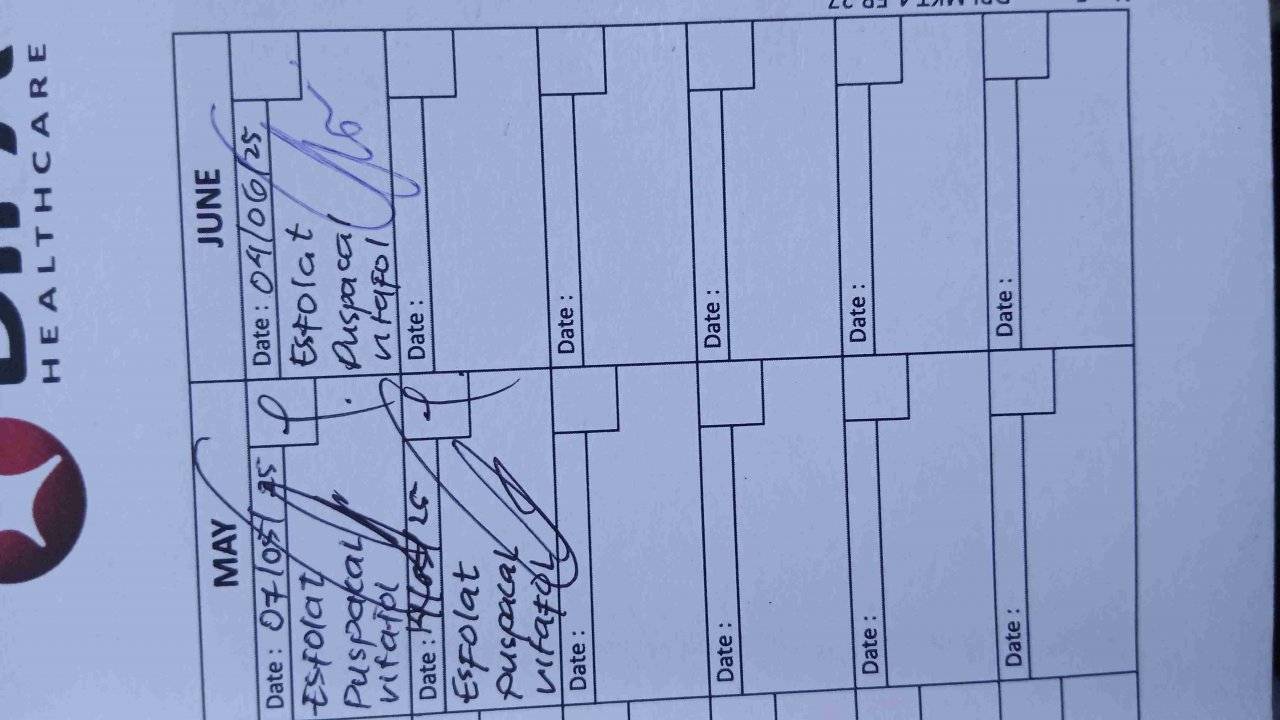 HEALTHCARE
MAY
Date : 07/05/25
Esfolat
Puspacal
Vifatol
Date : 25
Esfolat
Puspacal
Vifatol
Date :
Date :
Date :
Date :
JUNE
Date : 04/06/25
Esfolat
Puspacal
Vifatol
Date :
Date :
Date :
Date :
Date :